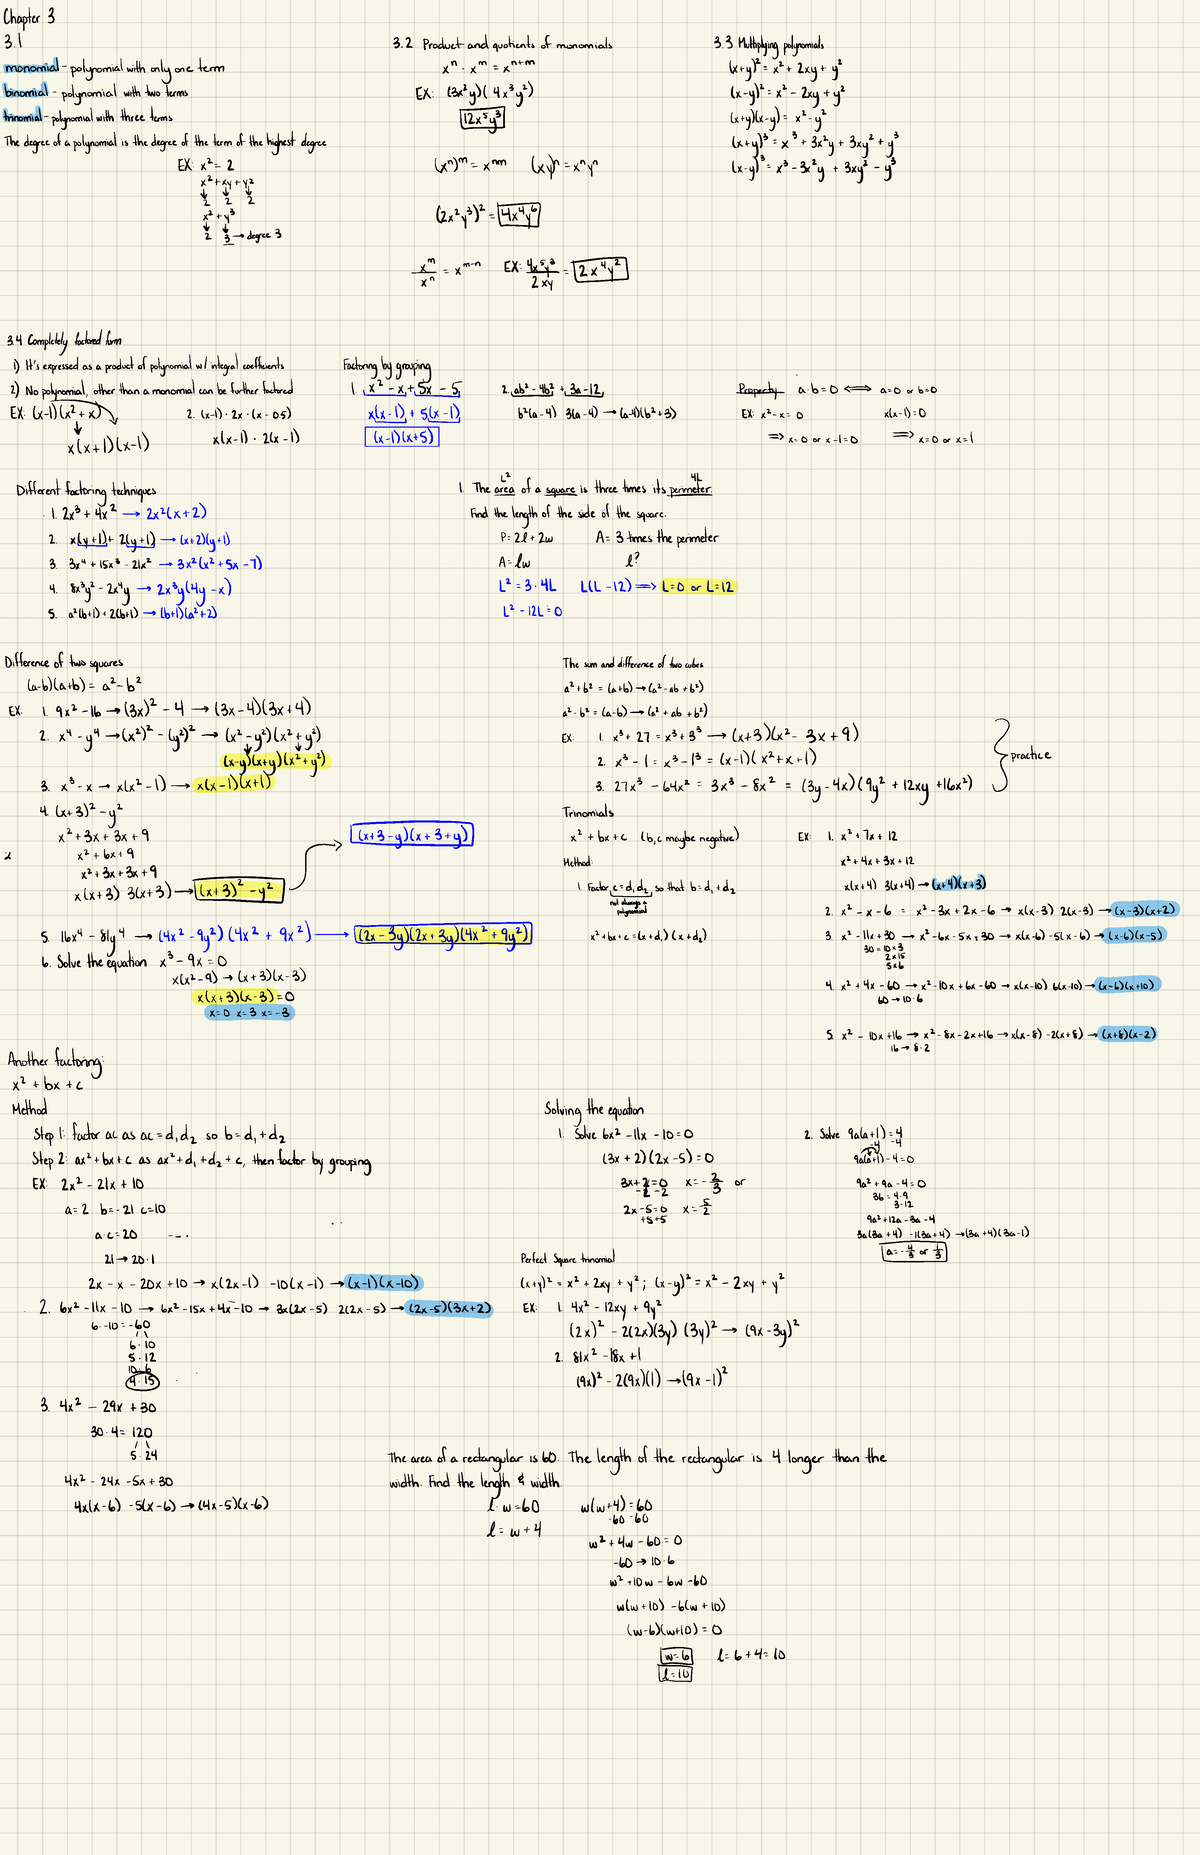 Chapter 3
3.1
monomial - polynomial with only one term
binomial - polynomial with two terms
trinomial - polynomial with three terms
The degree of a polynomial is the degree of the term of the highest degree
EX: x² = 2
x² + xy + y²
↓ ↓ ↓
2 2 2
x² + y³
↓ ↓
2 3 → degree 3
3.2 Product and quotients of monomials
xⁿ · xᵐ = xⁿ⁺ᵐ
EX: (3x²y)(4x³y²)
12x⁵y³
(xⁿ)ᵐ = xⁿᵐ (xy)ⁿ = xⁿyⁿ
(2x²y³)² = 4x⁴y⁶
xᵐ/xⁿ = xᵐ⁻ⁿ EX: 4x⁵y³/2xy = 2x⁴y²
3.3 Multiplying polynomials
(x+y)² = x² + 2xy + y²
(x-y)² = x² - 2xy + y²
(x+y)(x-y) = x² - y²
(x+y)³ = x³ + 3x²y + 3xy² + y³
(x-y)³ = x³ - 3x²y + 3xy² - y³
3.4 Completely factored form
1) It's expressed as a product of polynomial w/ integral coefficients
2) No polynomial, other than a monomial can be further factored
EX: (x-1)(x² + x)
↓
x(x+1)(x-1)
2. (x-1) · 2x · (x - 0.5)
x(x-1) · 2(x-1)
Factoring by grouping
1. x² - x + 5x - 5
x(x-1) + 5(x-1)
(x-1)(x+5)
2. ab² - 4b² + 3a - 12
b²(a-4) 3(a-4) → (a-4)(b²+3)
Property a·b = 0 ⟺ a=0 or b=0
EX: x² - x = 0 x(x-1) = 0
⟹ x=0 or x-1=0 ⟹ x=0 or x=1
Different factoring techniques
1. 2x³ + 4x² → 2x²(x+2)
2. x(y+1) + 2(y+1) → (x+2)(y+1)
3. 3x⁴ + 15x³ - 21x² → 3x²(x² + 5x - 7)
4. 8x³y² - 2x⁴y → 2x³y(4y - x)
5. a²(b+1) + 2(b+1) → (b+1)(a²+2)
L² 4L
1. The area of a square is three times its perimeter.
Find the length of the side of the square.
P = 2l + 2w A = 3 times the perimeter
A = lw l?
L² = 3·4L L(L-12) ⟹ L=0 or L=12
L² - 12L = 0
Difference of two squares
(a-b)(a+b) = a² - b²
EX: 1. 9x² - 16 → (3x)² - 4 → (3x-4)(3x+4)
2. x⁴ - y⁴ → (x²)² - (y²)² → (x² - y²)(x² + y²)
(x-y)(x+y)(x² + y²)
3. x³ - x → x(x² - 1) → x(x-1)(x+1)
4. (x+3)² - y²
x² + 3x + 3x + 9
x² + 6x + 9
x² + 3x + 3x + 9
x(x+3) 3(x+3) → (x+3)² - y²
(x+3-y)(x+3+y)
5. 16x⁴ - 81y⁴ → (4x² - 9y²)(4x² + 9x²) → (2x-3y)(2x+3y)(4x² + 9y²)
6. Solve the equation x³ - 9x = 0
x(x² - 9) → (x+3)(x-3)
x(x+3)(x-3) = 0
x=0 x=3 x=-3
The sum and difference of two cubes
a² + b² = (a+b) → (a² - ab + b²)
a² - b² = (a-b) → (a² + ab + b²)
EX: 1. x³ + 27 = x³ + 3³ → (x+3)(x² - 3x + 9)
2. x³ - 1 = x³ - 1³ = (x-1)(x² + x + 1)
3. 27x³ - 64x² = 3x³ - 8x² = (3y - 4x)(9y² + 12xy + 16x²)
practice
Trinomials
x² + bx + c (b,c maybe negative)
Method:
1. Factor c = d₁d₂, so that b = d₁ + d₂
not always a polynomial
x² + bx + c = (x+d₁)(x+d₂)
EX: 1. x² + 7x + 12
x² + 4x + 3x + 12
x(x+4) 3(x+4) → (x+4)(x+3)
2. x² - x - 6 = x² - 3x + 2x - 6 → x(x-3) 2(x-3) → (x-3)(x+2)
3. x² - 11x + 30 → x² - 6x - 5x + 30 → x(x-6) -5(x-6) → (x-6)(x-5)
30 = 10 × 3
2 × 15
5 × 6
4. x² + 4x - 60 → x² - 10x + 6x - 60 → x(x-10) 6(x-10) → (x-6)(x+10)
60 → 10·6
5. x² - 10x + 16 → x² - 8x - 2x + 16 → x(x-8) -2(x+8) → (x+8)(x-2)
16 → 8·2
Another factoring:
x² + bx + c
Method
Step 1: factor ac as ac = d₁d₂ so b = d₁ + d₂
Step 2: ax² + bx + c as ax² + d₁ + d₂ + c, then factor by grouping
EX: 2x² - 21x + 10
a=2 b=-21 c=10
a·c = 20
21 → 20·1
2x - x - 20x + 10 → x(2x-1) -10(x-1) → (x-1)(x-10)
2. 6x² - 11x - 10 → 6x² - 15x + 4x - 10 → 3x(2x-5) 2(2x-5) → (2x-5)(3x+2)
6·-10 = -60
6·10
5·12
10·6
4·15
3. 4x² - 29x + 30
30·4 = 120
5·24
4x² - 24x - 5x + 30
4x(x-6) -5(x-6) → (4x-5)(x-6)
Solving the equation
1. Solve 6x² - 11x - 10 = 0
(3x+2)(2x-5) = 0
3x+2=0 x = -2/3 or
-2 -2
2x-5=0 x = 5/2
+5 +5
2. Solve 9a(a+1) = 4
-4 -4
9a(a+1) - 4 = 0
9a² + 9a - 4 = 0
36 = 4·9
3·12
9a² + 12a - 3a - 4
3a(3a+4) -1(3a+4) → (3a+4)(3a-1)
a = -4/3 or 1/3
Perfect Square trinomial
(x+y)² = x² + 2xy + y²; (x-y)² = x² - 2xy + y²
EX: 1. 4x² - 12xy + 9y²
(2x)² - 2(2x)(3y) (3y)² → (9x-3y)²
2. 81x² - 18x + 1
(9x)² - 2(9x)(1) → (9x-1)²
The area of a rectangular is 60. The length of the rectangular is 4 longer than the
width. Find the length & width.
l·w = 60 w(w+4) = 60
-60 -60
l = w + 4
w² + 4w - 60 = 0
-60 → 10·6
w² + 10w - 6w - 60
w(w+10) -6(w+10)
(w-6)(w+10) = 0
w=6 l = 6+4 = 10
l=10